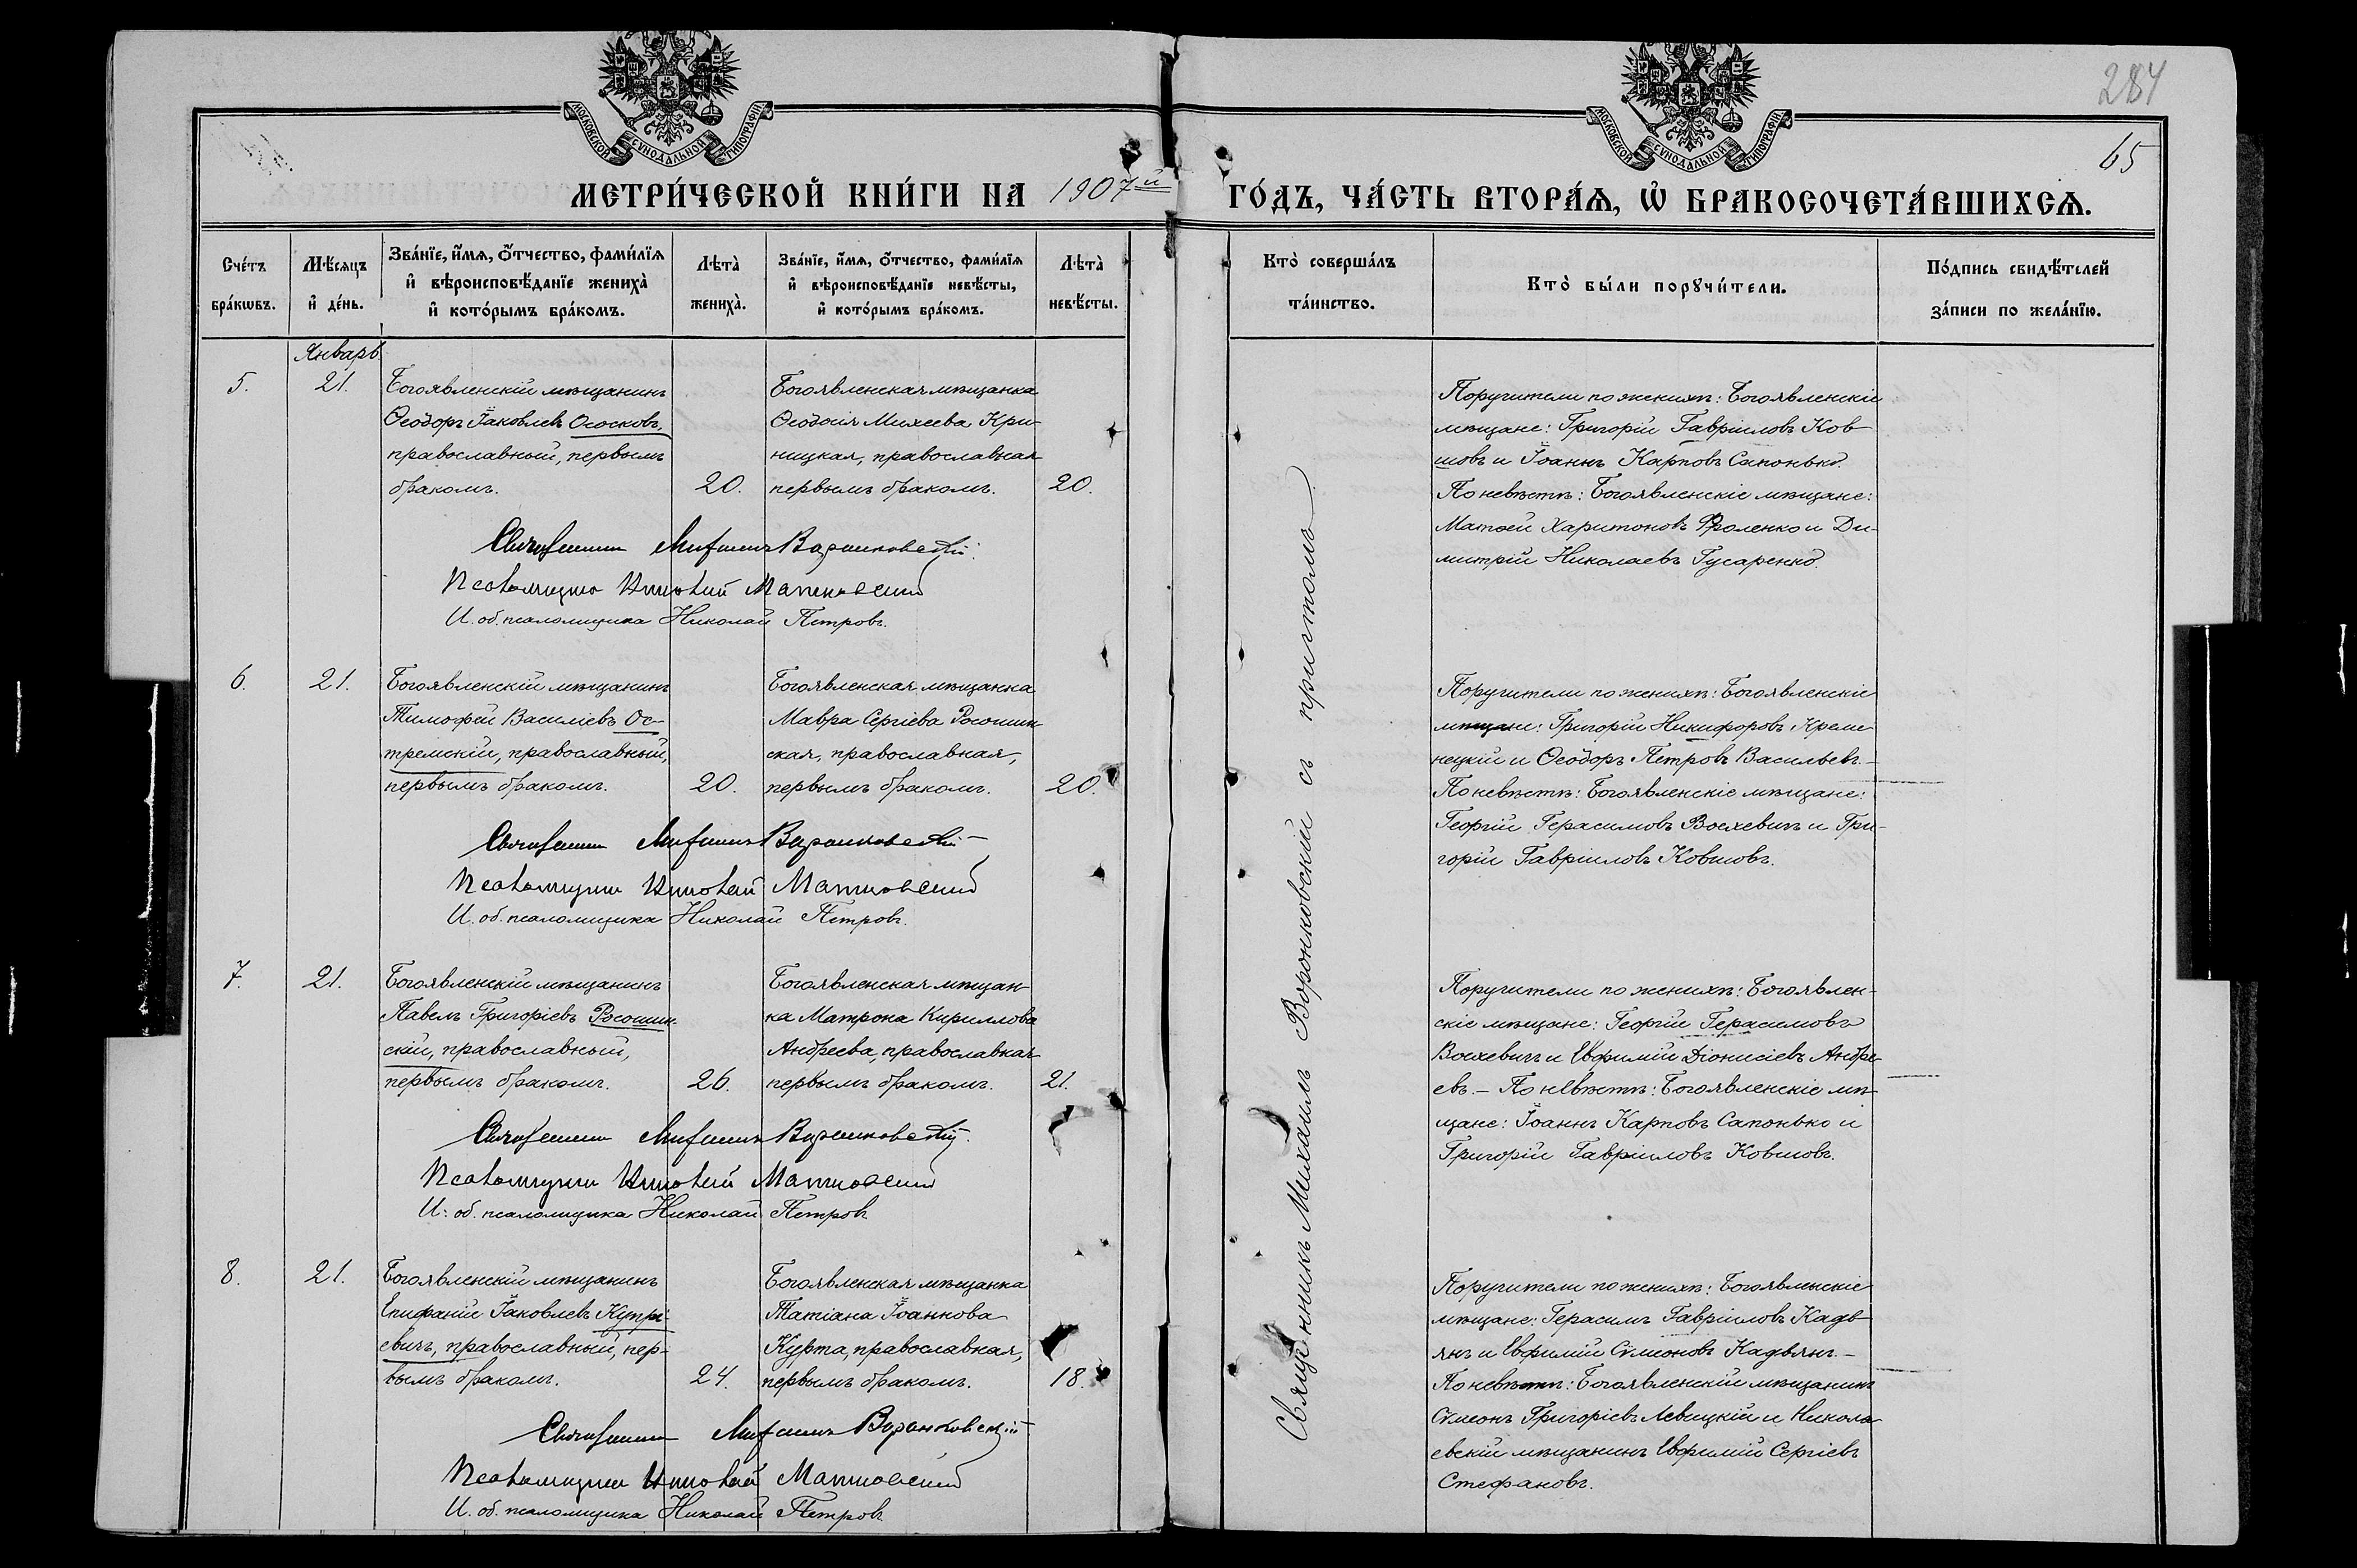 МОСКОВСКОЙ СѴНОДАЛЬНОЙ ТИПОГРАФІИ
МОСКОВСКОЙ СѴНОДАЛЬНОЙ ТИПОГРАФІИ
284
65
МЕТРИ́ЧЕСКОЙ КНИ́ГИ НА 1907й ГО́ДЪ, ЧА́СТЬ ВТОРА́Ѧ, Ѡ҆ БРАКОСОЧЕТА́ВШИХСѦ.
Сче́тъ бра́кѡвъ.
Мѣ́сяцъ и҆ де́нь.
Зва́нїе, и҆́мѧ, ѻ҆́тчество, фами́лїѧ
и҆ вѣроисповѣ́данїе жениха̀
и҆ кото́рымъ бра́комъ.
Лѣта̀ жениха̀.
Зва́нїе, и҆́мѧ, ѻ҆́тчество, фами́лїѧ
и҆ вѣроисповѣ́данїе невѣ́сты,
и҆ кото́рымъ бра́комъ.
Лѣта̀ невѣ́сты.
Кто̀ соверша́лъ та́инство.
Кто̀ бы́ли порꙋчи́тели.
По́дпись свидѣ́телей за́писи по жела́нїю.
Январь.
5.
21.
Богоявленскій мѣщанинъ
Ѳеодоръ Іаковлевъ Ососковъ,
православный, первымъ
бракомъ.
20.
Богоявленская мѣщанка
Ѳеодосія Михеева Кри-
ницкая, православная
первымъ бракомъ.
20.
Поручители по женихѣ: Богоявленскіе
мѣщане: Григорій Гавріиловъ Ков-
шовъ и Іоаннъ Карповъ Сапонько.
По невѣстѣ: Богоявленскіе мѣщане:
Матѳей Харитоновъ Фроленко и Ди-
митрій Николаевъ Гусаренко.
Священникъ Михаилъ Воронковскій
Псаломщикъ Матковскій
И. об. псаломщика Николай Петровъ.
6.
21.
Богоявленскій мѣщанинъ
Тимофей Василіевъ Ос-
тремскій, православный,
первымъ бракомъ.
20.
Богоявленская мѣщанка
Мавра Сергіева Росошин-
ская, православная,
первымъ бракомъ.
20.
Поручители по женихѣ: Богоявленскіе
мѣщане: Григорій Никифоровъ Креме-
нецкій и Ѳеодоръ Петровъ Васильевъ.-
По невѣстѣ: Богоявленскіе мѣщане:
Георгій Герасимовъ Восхевичъ и Гри-
горій Гавріиловъ Ковшовъ.
Священникъ Михаилъ Воронковскій
Псаломщикъ Матковскій
И. об. псаломщика Николай Петровъ.
7.
21.
Богоявленскій мѣщанинъ
Павелъ Григоріевъ Росошин-
скій, православный,
первымъ бракомъ.
26.
Богоявленская мѣщан-
ка Матрона Кириллова
Андреева, православная
первымъ бракомъ.
21.
Поручители по женихѣ: Богоявлен-
скіе мѣщане: Георгій Герасимовъ
Восхевичъ и Евфимій Діонисіевъ Андре-
евъ.- По невѣстѣ: Богоявленскіе мѣ-
щане: Іоаннъ Карповъ Сапонько и
Григорій Гавріиловъ Ковшовъ.
Священникъ Михаилъ Воронковскій
Псаломщикъ Матковскій
И. об. псаломщика Николай Петровъ
8.
21.
Богоявленскій мѣщанинъ
Епифаній Іаковлевъ Купрі-
евичъ, православный, пер-
вымъ бракомъ.
24.
Богоявленская мѣщанка
Татіана Іоаннова
Курта, православная,
первымъ бракомъ.
18.
Поручители по женихѣ: Богоявленскіе
мѣщане: Герасимъ Гавріиловъ Кадь-
янъ и Евфимій Сѵмеоновъ Кадьянъ.-
По невѣстѣ: Богоявленскій мѣщанинъ
Сѵмеонъ Григоріевъ Левицкій и Никола-
евскій мѣщанинъ Евфимій Сергіевъ
Стефановъ.
Священникъ Михаилъ Воронковскій
Псаломщикъ Матковскій
И. об. псаломщика Николай Петровъ
Священникъ Михаилъ Воронковскій съ причтомъ